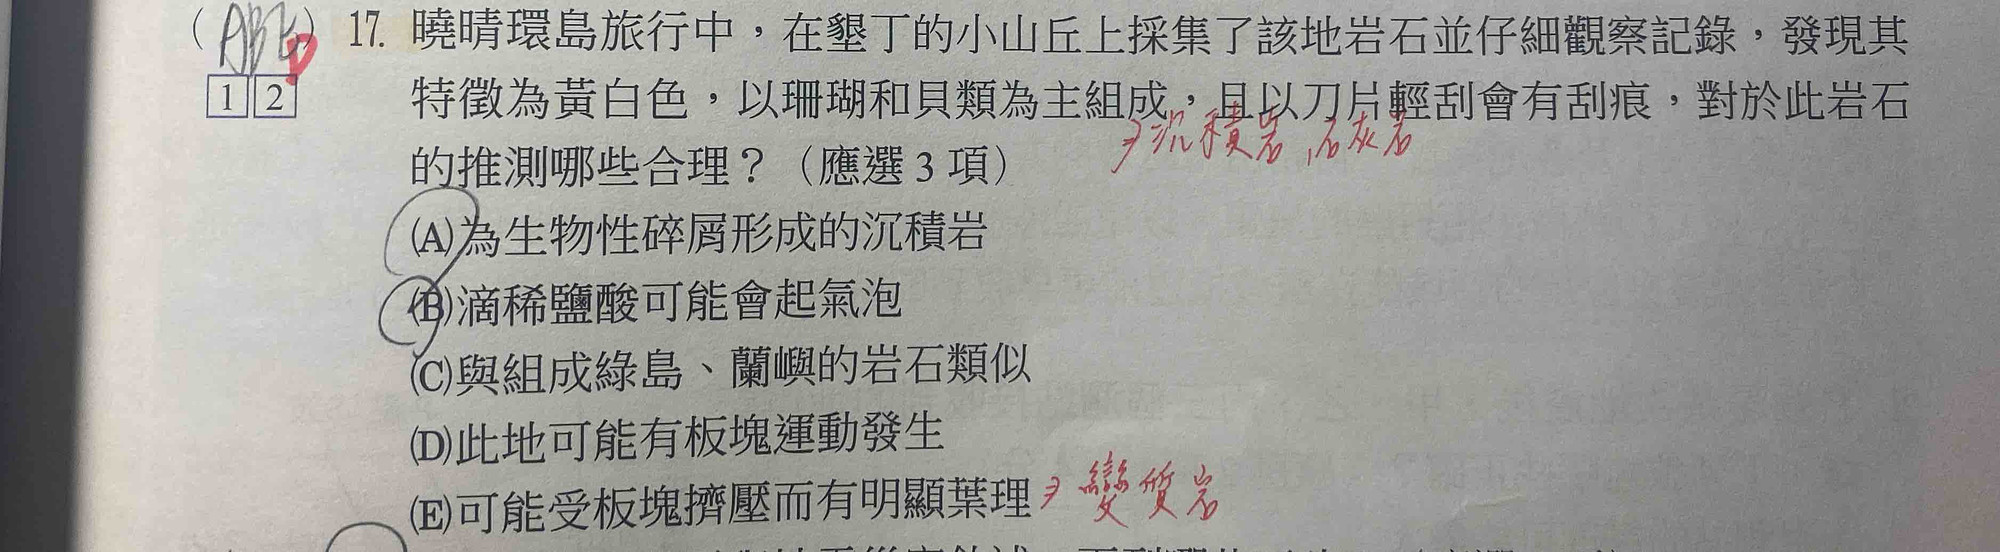 ( ABE ) 17. 曉晴環島旅行中，在墾丁的小山丘上採集了該地岩石並仔細觀察記錄，發現其
D
1 2 特徵為黃白色，以珊瑚和貝類為主組成，且以刀片輕刮會有刮痕，對於此岩石
→沉積岩,石灰岩
的推測哪些合理？（應選3項）
(A)為生物性碎屑形成的沉積岩
(B)滴稀鹽酸可能會起氣泡
(C)與組成綠島、蘭嶼的岩石類似
(D)此地可能有板塊運動發生
(E)可能受板塊擠壓而有明顯葉理→變質岩